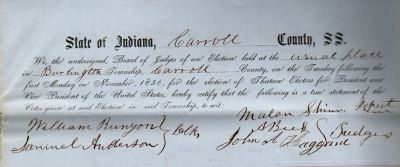 State of Indiana, Carroll County, SS.
We the undersigned, Board of Judges of an Election held at the usual place
in Burlington Township, Carroll County, on the Tuesday following the
first Monday in November, 1856, for the election of Thirteen Electors for President and
Vice President of the United States, hereby certify that the following is a true statement of the
Votes given at said Election in said Township, to wit.
William Runyon
Samuel Anderson Clks
Mahlon Shinn Inspet
John A Haggard Judges